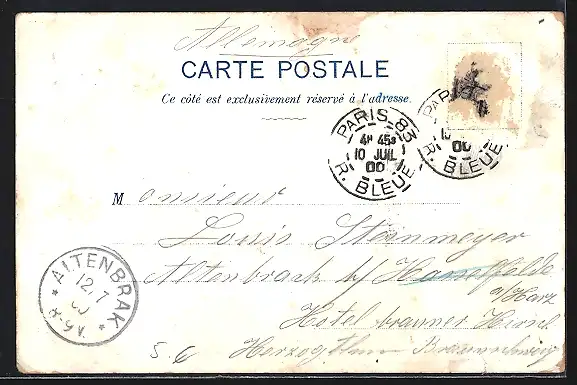 Allemagne
CARTE POSTALE
Ce côté est exclusivement réservé à l'adresse.
PARIS 83
4ᴱ 45ˢ
10 JUIL
00
R. BLEUE
PARIS
10
00
R. BLEUE
Monsieur
Louis Steinmeyer
Altenbrack b/ Hasselfelde
a/Harz
Hotel brauner Hirsch
Herzogthum Braunschweig
ALTENBRAK
12/7
00
8-9V
S. 6